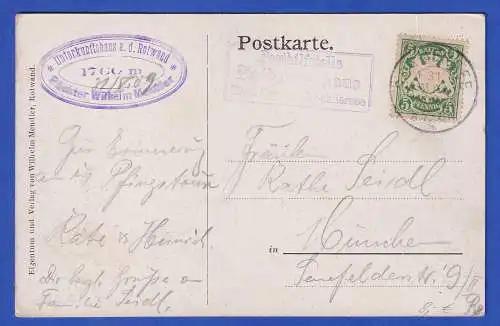 Unterkunftshaus a. d. Rotwand
1766 m
Pächter Wilhelm Mendler
Postkarte.
Posthilfstelle
BAYERN
5 5
PFENNIG
Eigentum und Verlag von Wilhelm Mendler, Rotwand.
Zur Erinnerung
an die Pfingsttour
Käte & Heinrich.
Die bzgl. Grüsse an
Familie Seidl.
Fräulein
Käthe Seidl
in München
Senefelderstr. 9/II